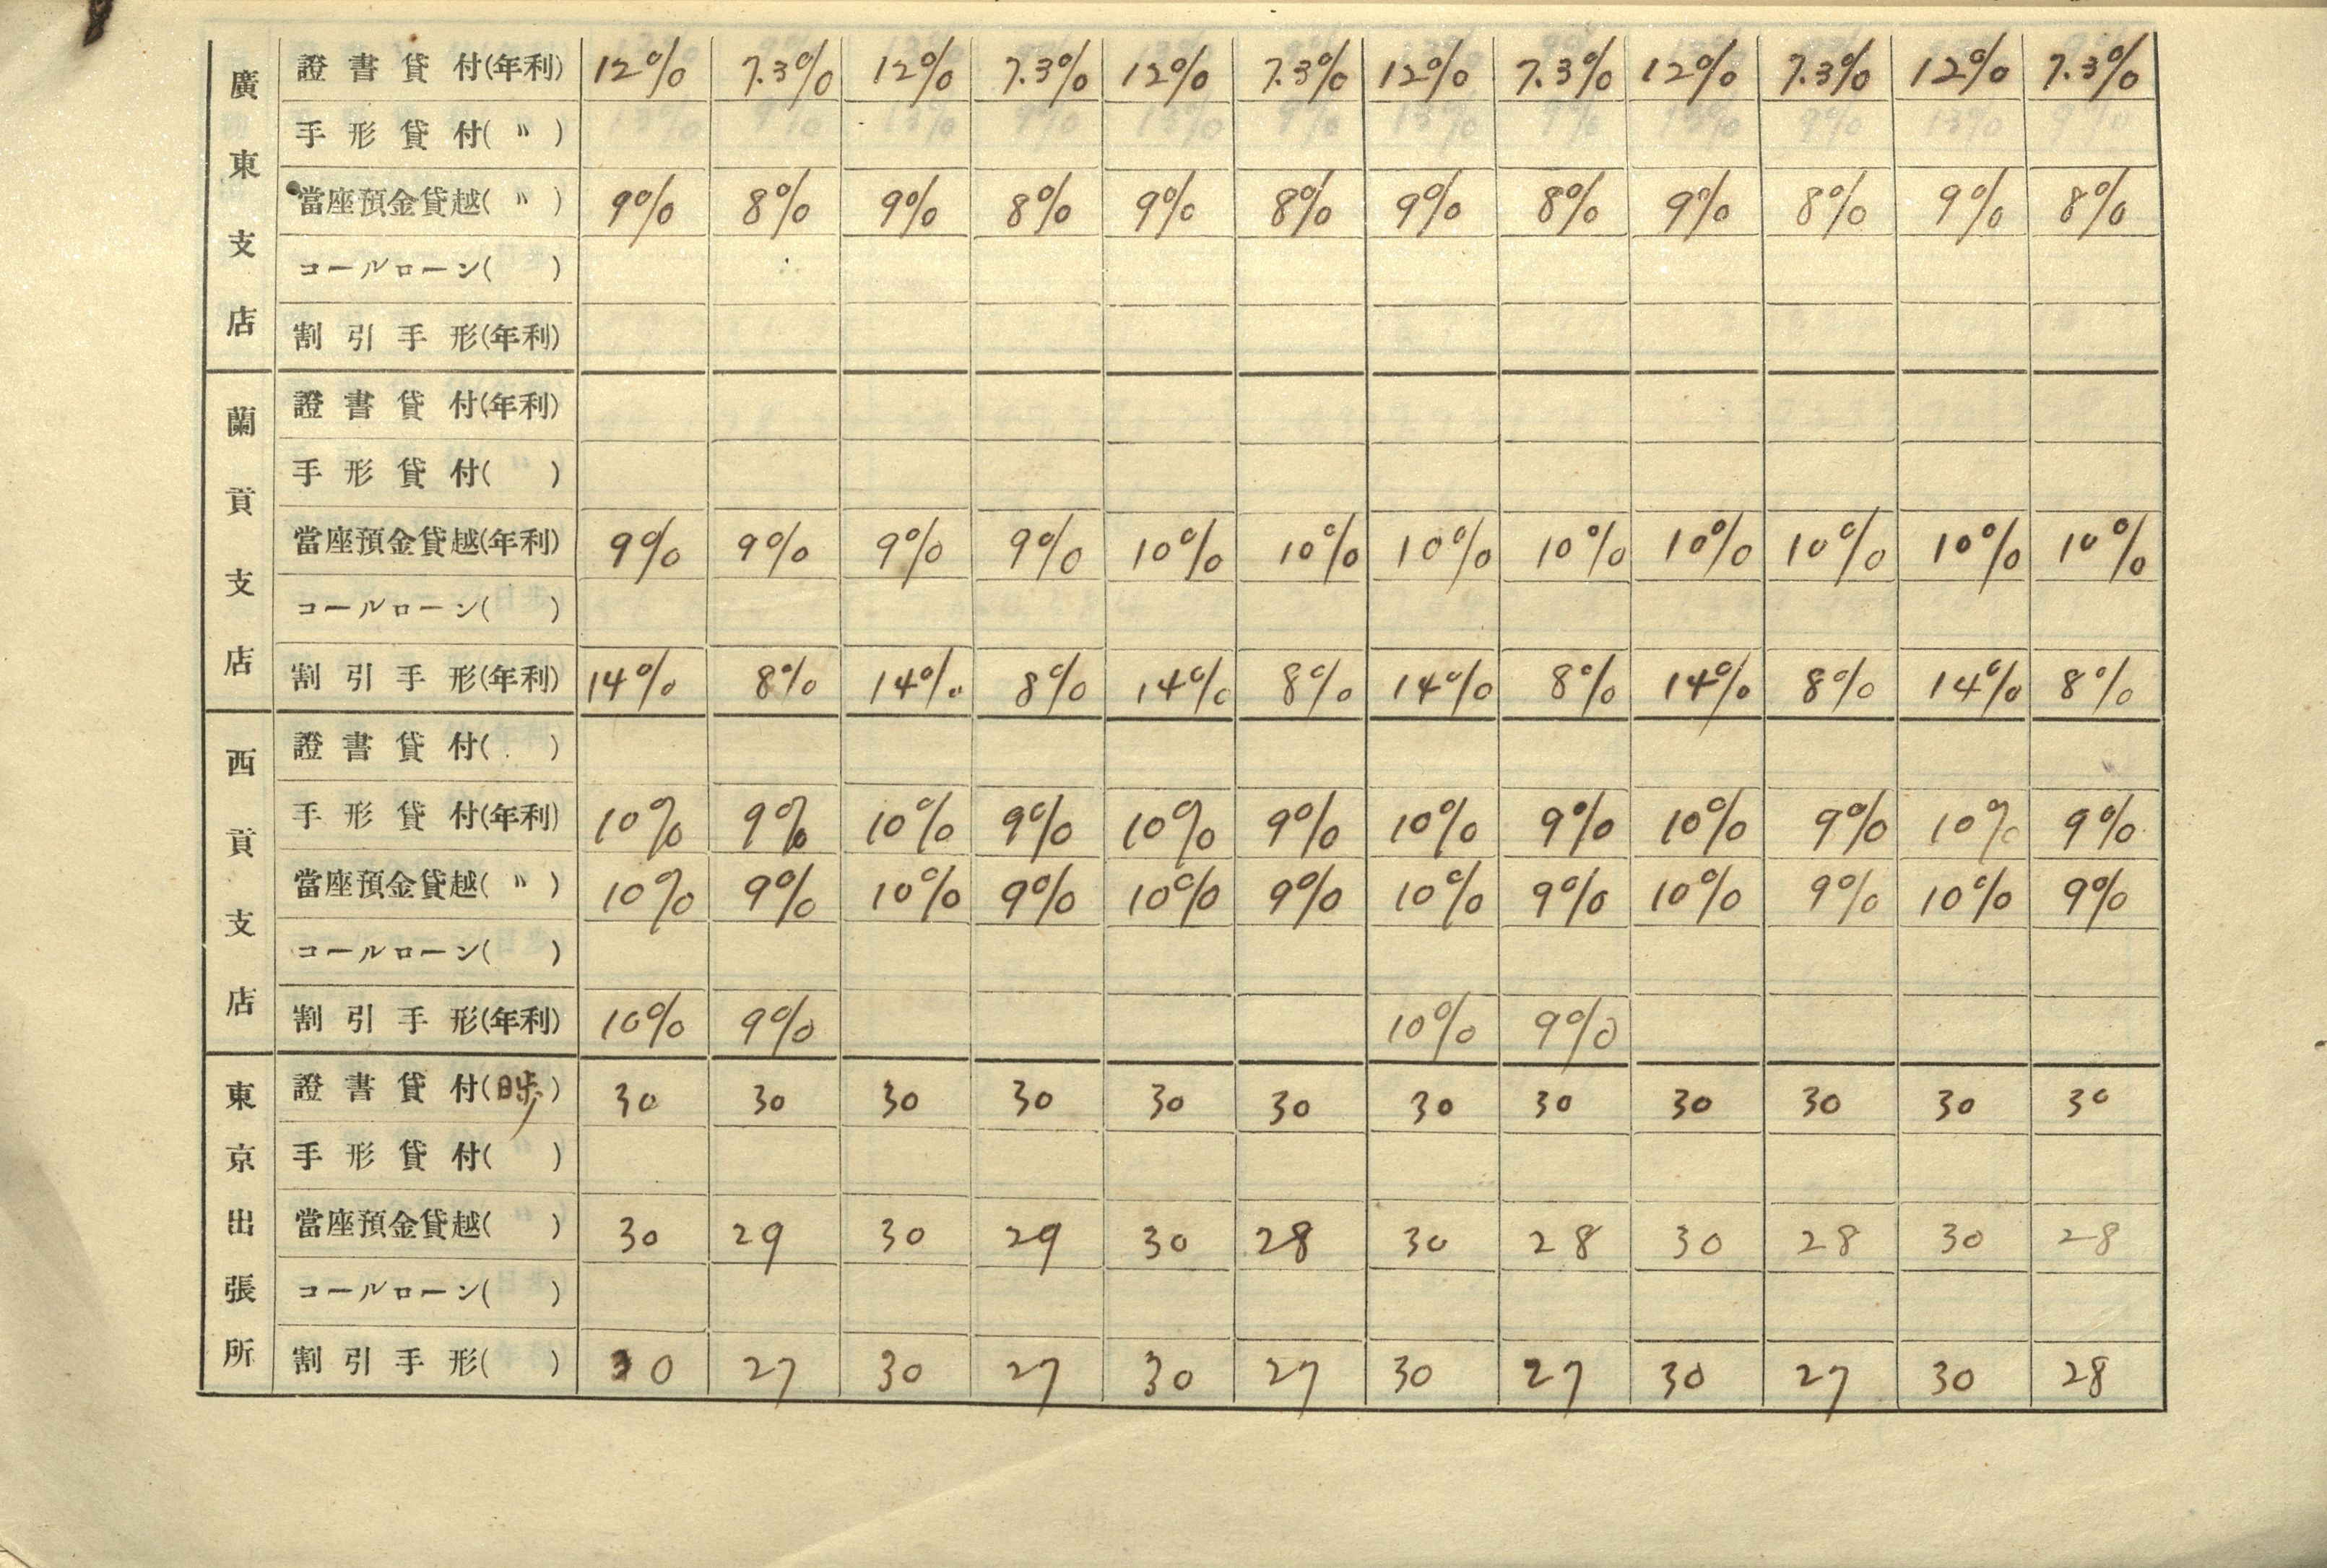 廣東支店
證書貸付(年利) 12% 7.3% 12% 7.3% 12% 7.3% 12% 7.3% 12% 7.3% 12% 7.3%
手形貸付(〃)
當座預金貸越(〃) 9% 8% 9% 8% 9% 8% 9% 8% 9% 8% 9% 8%
コールローン( )
割引手形(年利)
蘭貢支店
證書貸付(年利)
手形貸付( )
當座預金貸越(年利) 9% 9% 9% 9% 10% 10% 10% 10% 10% 10% 10% 10%
コールローン( )
割引手形(年利) 14% 8% 14% 8% 14% 8% 14% 8% 14% 8% 14% 8%
西貢支店
證書貸付( )
手形貸付(年利) 10% 9% 10% 9% 10% 9% 10% 9% 10% 9% 10% 9%
當座預金貸越(〃) 10% 9% 10% 9% 10% 9% 10% 9% 10% 9% 10% 9%
コールローン( )
割引手形(年利) 10% 9% 10% 9%
東京出張所
證書貸付(日歩) 30 30 30 30 30 30 30 30 30 30 30 30
手形貸付( )
當座預金貸越( ) 30 29 30 29 30 28 30 28 30 28 30 28
コールローン( )
割引手形( ) 30 27 30 27 30 27 30 27 30 27 30 28